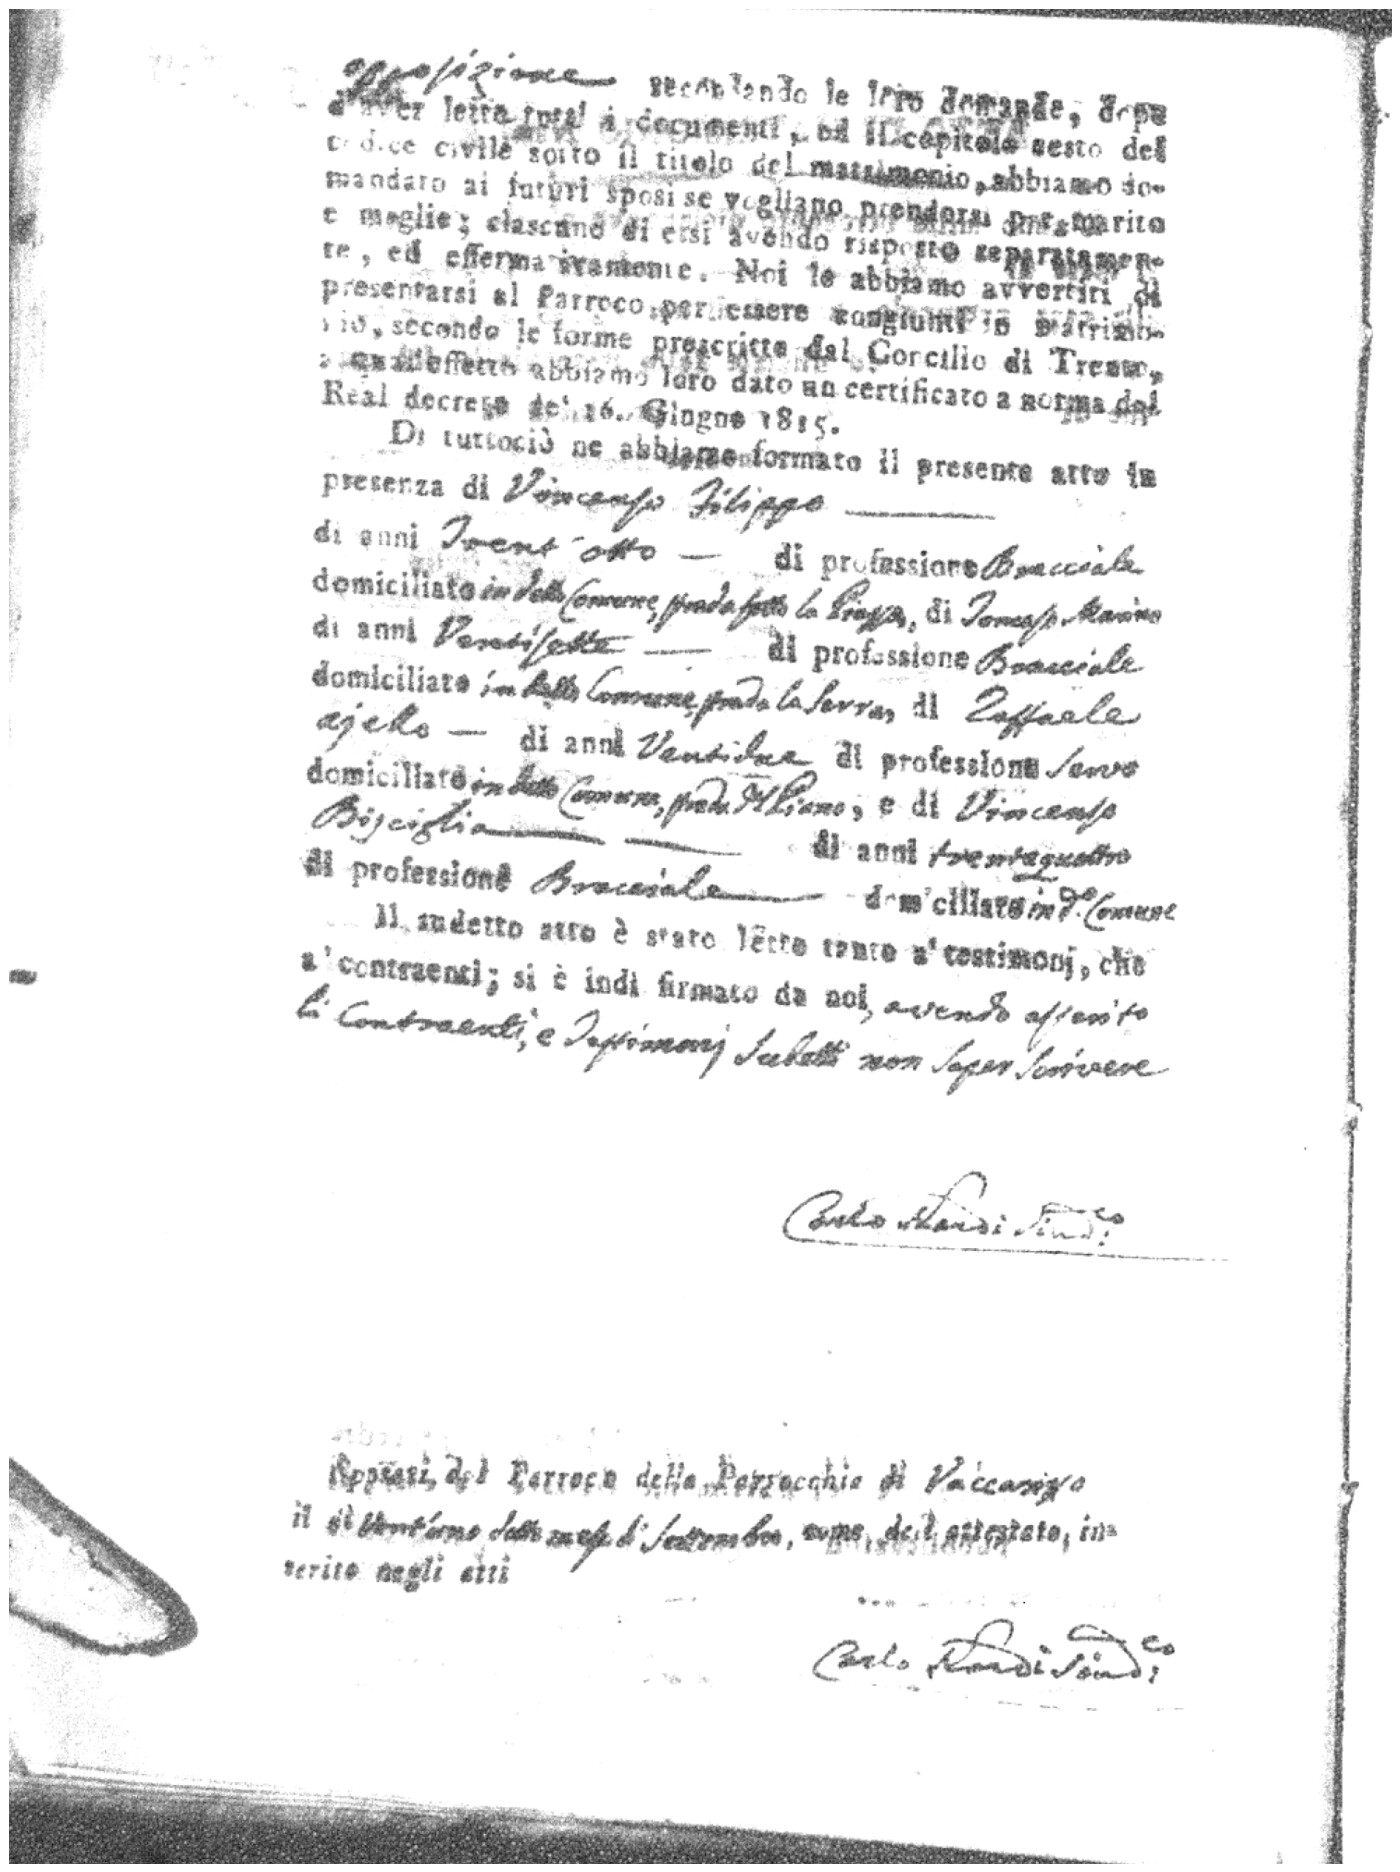 opposizione secondando le loro domande, dopo
d'aver letto tutti i documenti, ed il capitolo sesto del
codice civile sotto il titolo del matrimonio, abbiamo do-
mandato ai futuri sposi se vogliano prendersi per marito
e moglie; ciascuno di essi avendo risposto separatamen-
te, ed affermativamente. Noi le abbiamo avvertiti di
presentarsi al Parroco, per essere congiunti in matrimo-
nio, secondo le forme prescritte dal Concilio di Trento,
a qual'effetto abbiamo loro dato un certificato a norma del
Real decreto de' 16. Giugno 1815.
Di tuttociò ne abbiamo formato il presente atto in
presenza di Vincenzo Filippo
di anni Trent'otto di professione Bracciale
domiciliato in detto Comune, strada sotto la Piazza, di Tomaso Marino
di anni Ventisette di professione Bracciale
domiciliato in detto Comune, strada la Serra, di Raffaele
ajello di anni Ventidue di professione Servo
domiciliato in detto Comune, strada del Piano, e di Vincenzo
Bisciglia di anni trentaquattro
di professione Bracciale domiciliato in d.o Comune
Il sudetto atto è stato letto tanto a' testimonj, che
a' contraenti; si è indi firmato da noi, avendo asserito
li Contraenti, e Testimonj sudetti non saper scrivere
Carlo Sind.co
del Parroco della Parrocchia di Vaccarizo
il dì Ventiuno detto mese di Settembre, come dall attestato, in-
serito negli atti
Carlo Sind.co